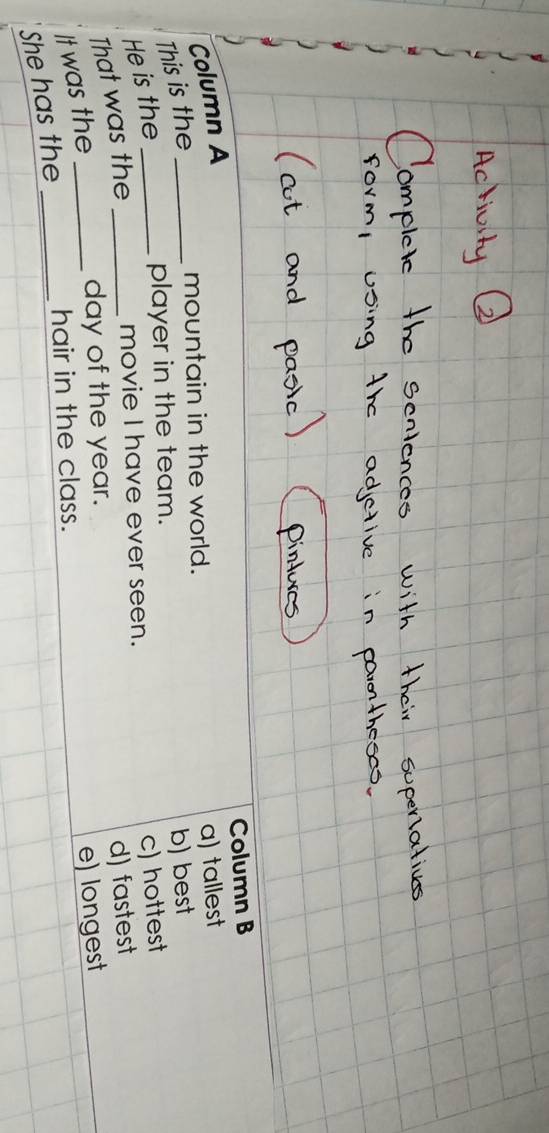 Activity 2
Complete the sentences with their superlatives
form, using the adjetive in parontheses.
(cut and paste) pintures
Column A
This is the ________ mountain in the world.
He is the ________ player in the team.
That was the ________ movie I have ever seen.
It was the ________ day of the year.
She has the ________ hair in the class.
Column B
a) tallest
b) best
c) hottest
d) fastest
e) longest